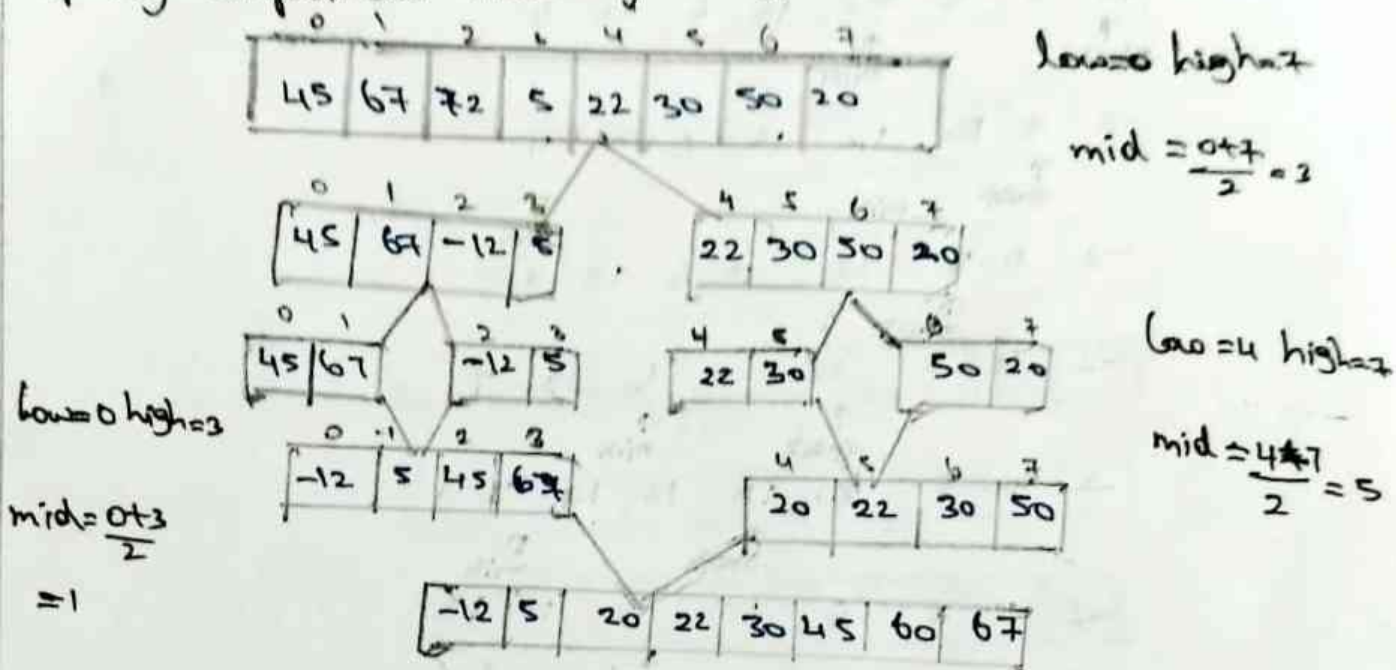 0 1 2 3 4 5 6 7
45 67 72 5 22 30 50 20
low=0 high=7
mid = 0+7/2 = 3
0 1 2 3 4 5 6 7
45 67 -12 5 22 30 50 20
0 1 2 3 4 5 6 7
45 67 -12 5 22 30 50 20
low=4 high=7
mid = 4+7/2 = 5
low=0 high=3
mid = 0+3/2
=1
0 1 2 3 4 5 6 7
-12 5 45 67 20 22 30 50
-12 5 20 22 30 45 60 67